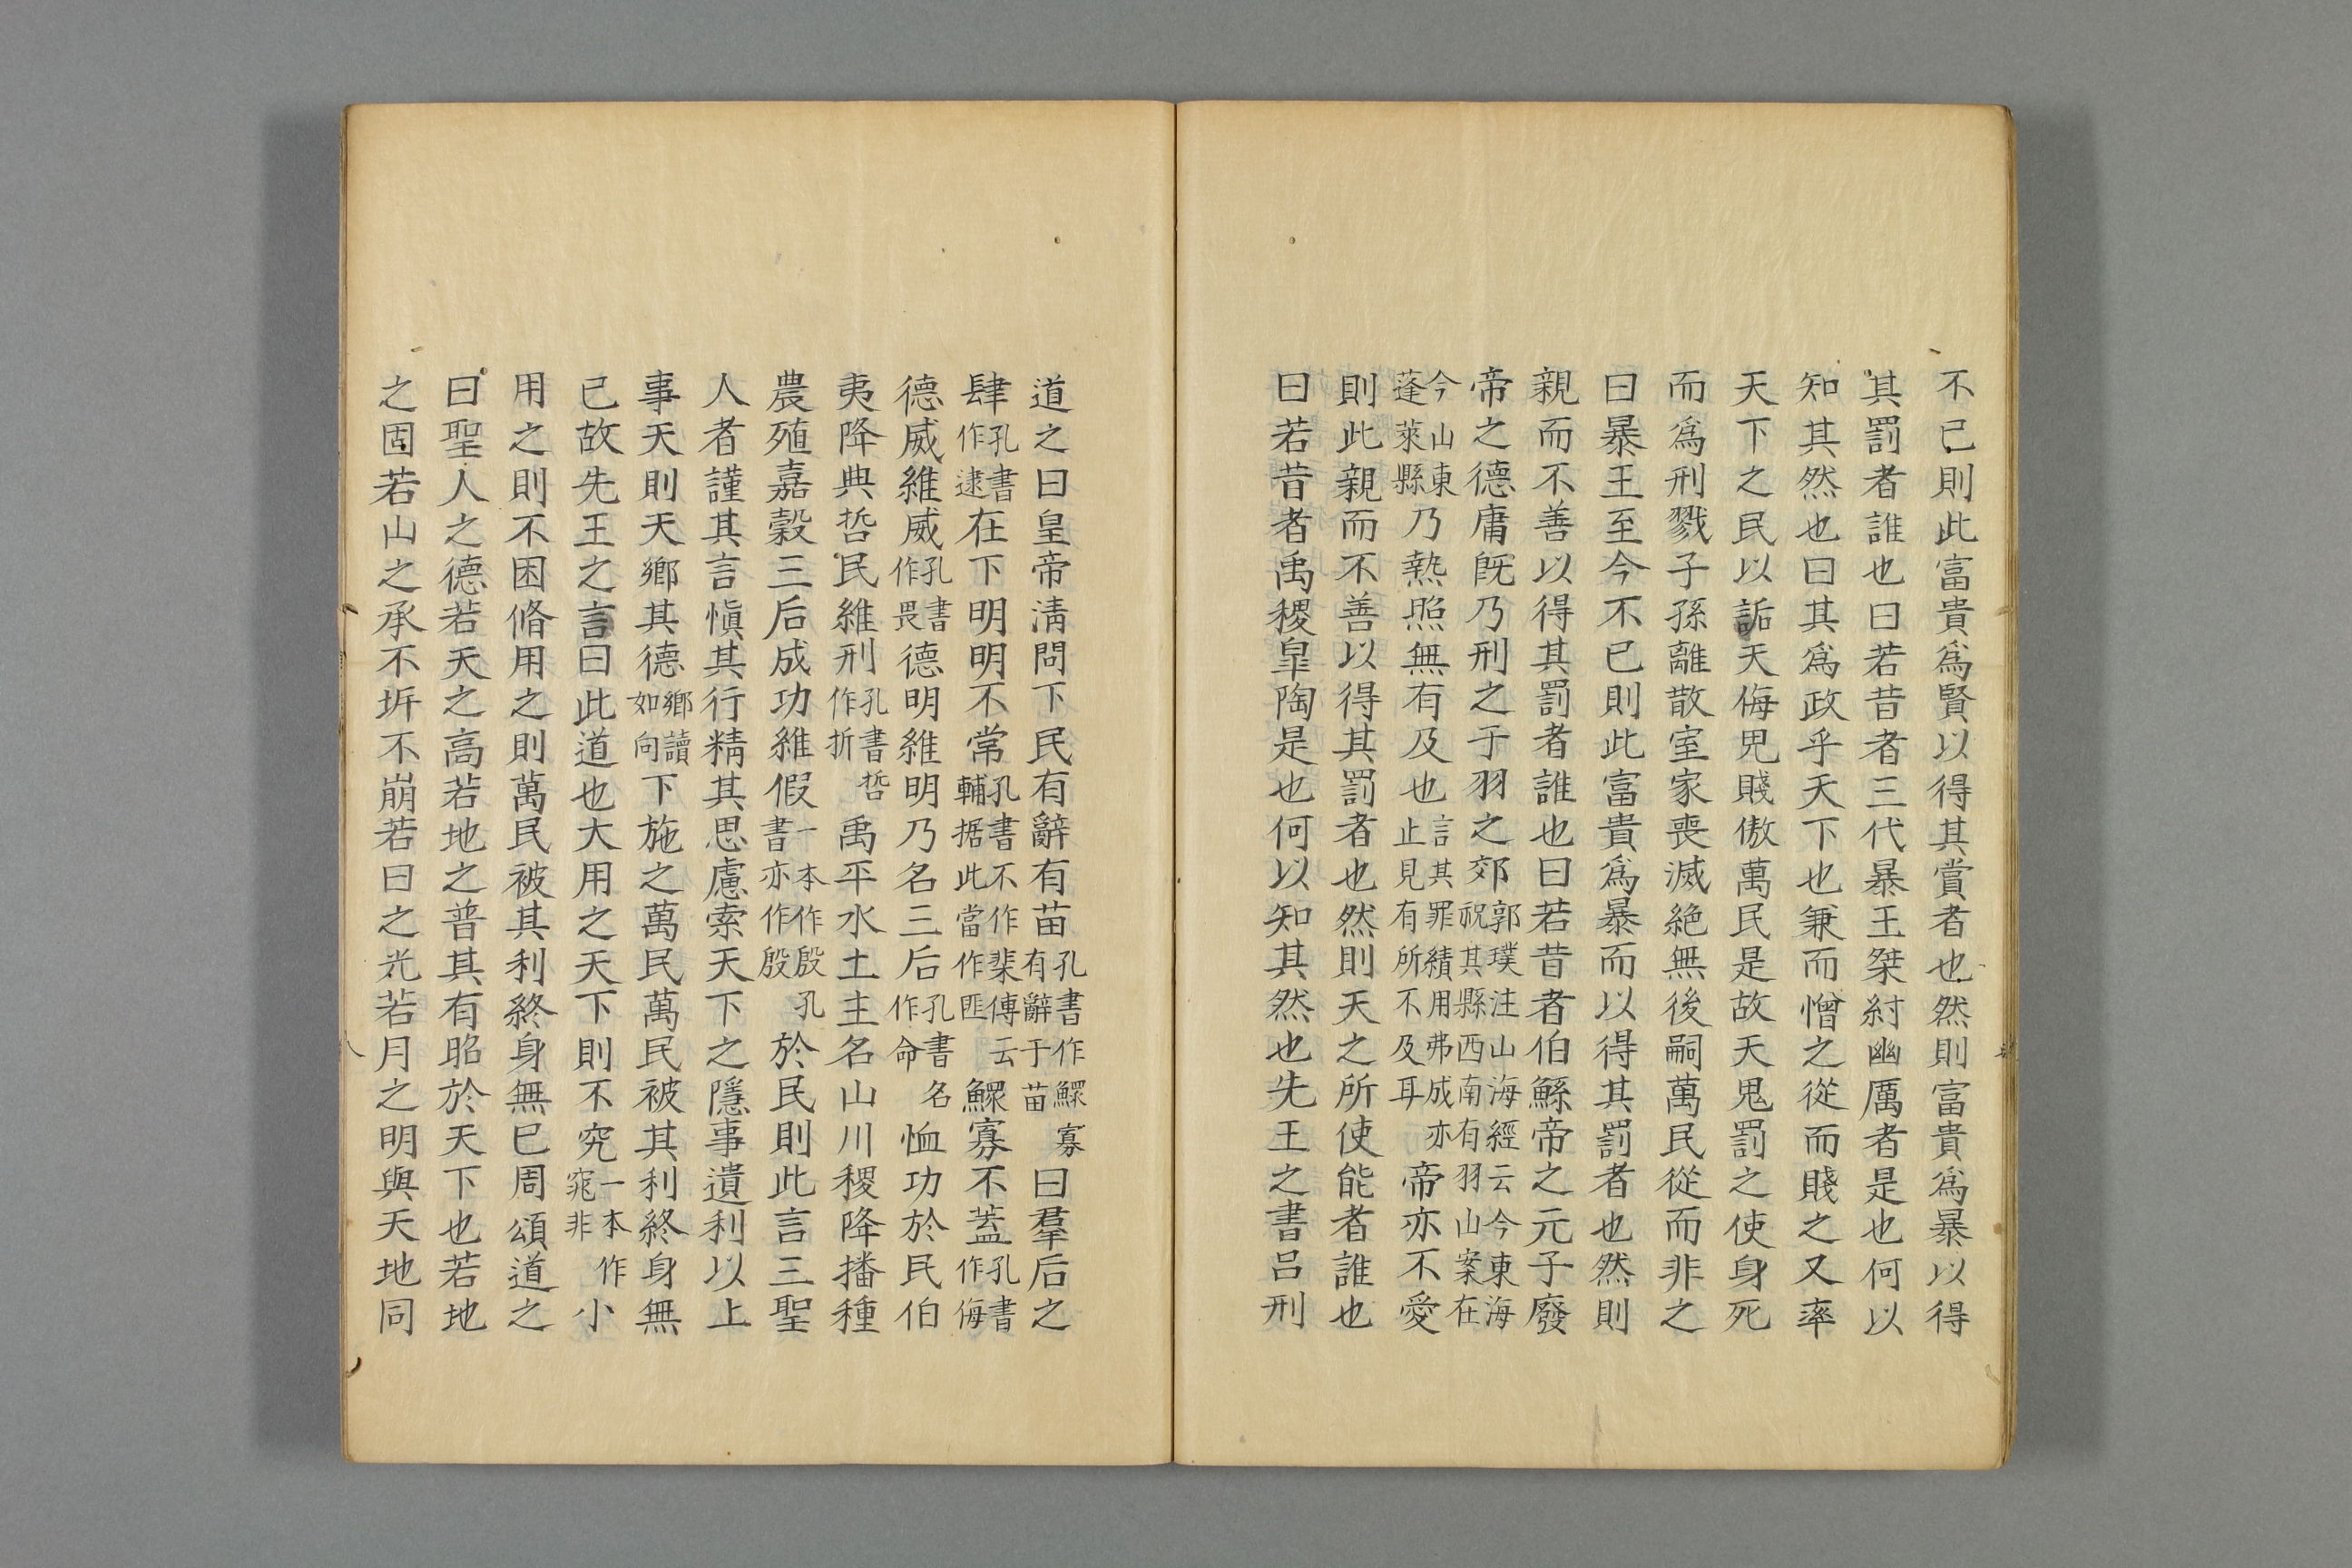 不已則此富貴爲賢以得其賞者也然則富貴爲暴以得
其罰者誰也曰若昔者三代暴王桀紂幽厲者是也何以
知其然也曰其爲政乎天下也兼而憎之從而賤之又率
天下之民以詬天侮鬼賤傲萬民是故天鬼罰之使身死
而爲刑戮子孫離散室家喪滅絶無後嗣萬民從而非之
曰暴王至今不已則此富貴爲暴而以得其罰者也然則
親而不善以得其罰者誰也曰若昔者伯鯀帝之元子廢
帝之德庸旣乃刑之于羽之郊郭璞注山海經云今東海祝其縣西南有羽山案在
今山東蓬萊縣乃熱照無有及也言其罪績用弗成亦止見有所不及耳帝亦不愛
則此親而不善以得其罰者也然則天之所使能者誰也
曰若昔者禹稷皐陶是也何以知其然也先王之書呂刑
道之曰皇帝淸問下民有辭有苗孔書作鰥寡有辭于苗曰羣后之
肆孔書作逮在下明明不常孔書不作棐傳云輔据此當作匪鰥寡不葢孔書作侮
德威維威孔書作畏德明維明乃名三后孔書名作命恤功於民伯
夷降典哲民維刑孔書哲作折禹平水土主名山川稷降播種
農殖嘉穀三后成功維假一本作殷孔書亦作殷於民則此言三聖
人者謹其言愼其行精其思慮索天下之隱事遺利以上
事天則天鄉其德鄉讀如向下施之萬民萬民被其利終身無
已故先王之言曰此道也大用之天下則不究一本作窕非小
用之則不困脩用之則萬民被其利終身無已周頌道之
曰聖人之德若天之高若地之普其有昭於天下也若地
之固若山之承不坼不崩若日之光若月之明與天地同